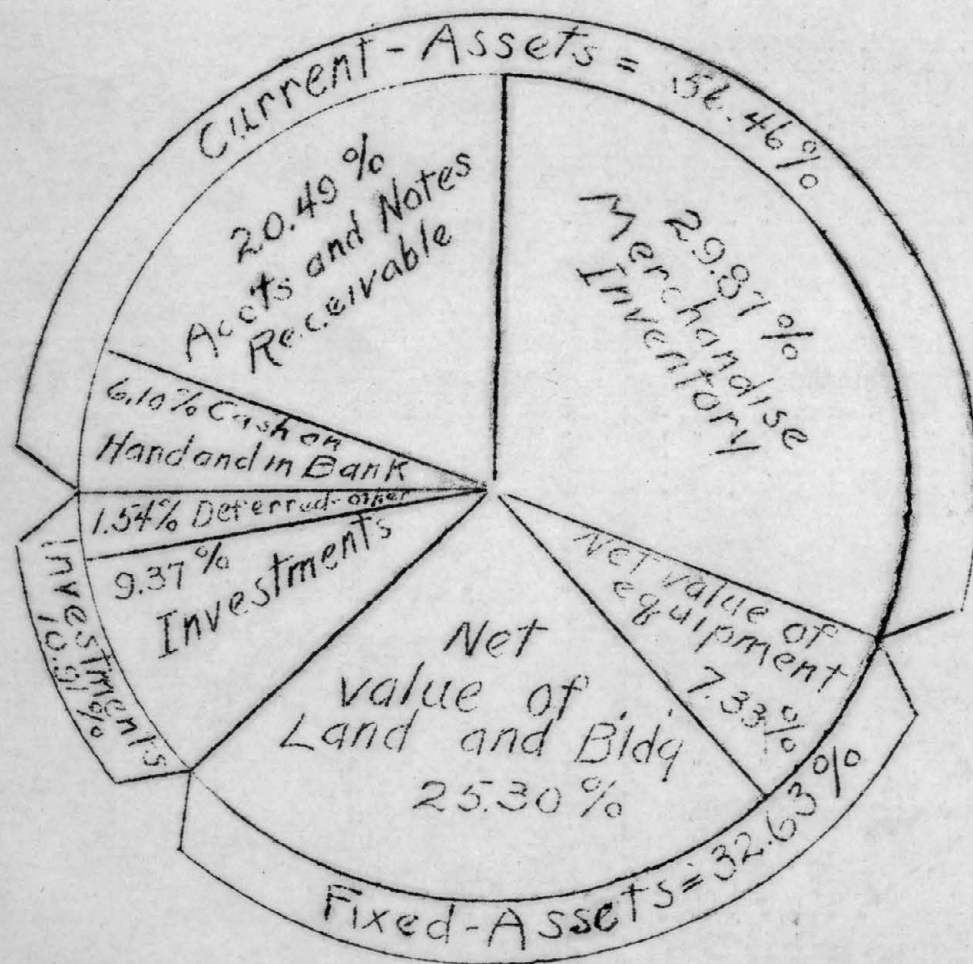 Current-Assets = 56.46%
20.49%
Acc'ts and Notes
Receivable
29.87%
Merchandise
Inventory
6.10% Cash on
Hand and in Bank
1.54% Deferred-other
9.37%
Investments
Investments
10.91%
Net value of
equipment
7.33%
Net
value of
Land and Bldg
25.30%
Fixed-Assets=32.63%